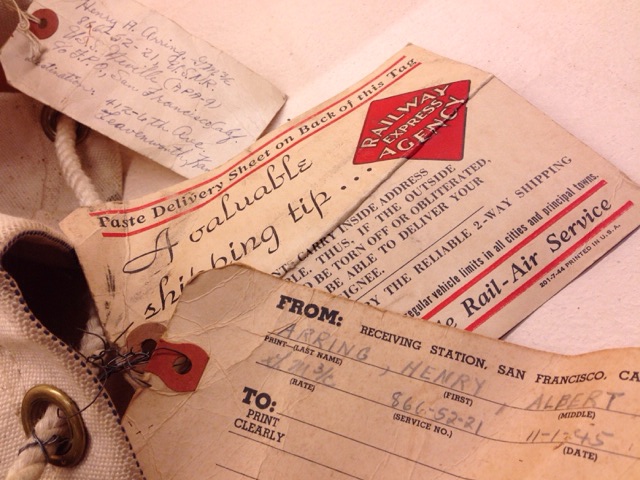 Henry A. Arring
866-52-21 U.S.N.R.
San Francisco, Calif
412-6th Ave.
Leavenworth,
Paste Delivery Sheet on Back of this Tag
RAILWAY
EXPRESS
AGENCY
A valuable
shipping tip...
CARRY INSIDE ADDRESS
THUS, IF THE OUTSIDE
BE TORN OFF OR OBLITERATED,
BE ABLE TO DELIVER YOUR
THE RELIABLE 2-WAY SHIPPING
regular vehicle limits in all cities and principal towns.
Rail-Air Service
201-7-44 PRINTED IN U.S.A.
FROM: RECEIVING STATION, SAN FRANCISCO,
ARRING, HENRY ALBERT
PRINT—(LAST NAME) (FIRST) (MIDDLE)
866-52-21 11-1-45
(RATE) (SERVICE NO.) (DATE)
TO:
PRINT
CLEARLY